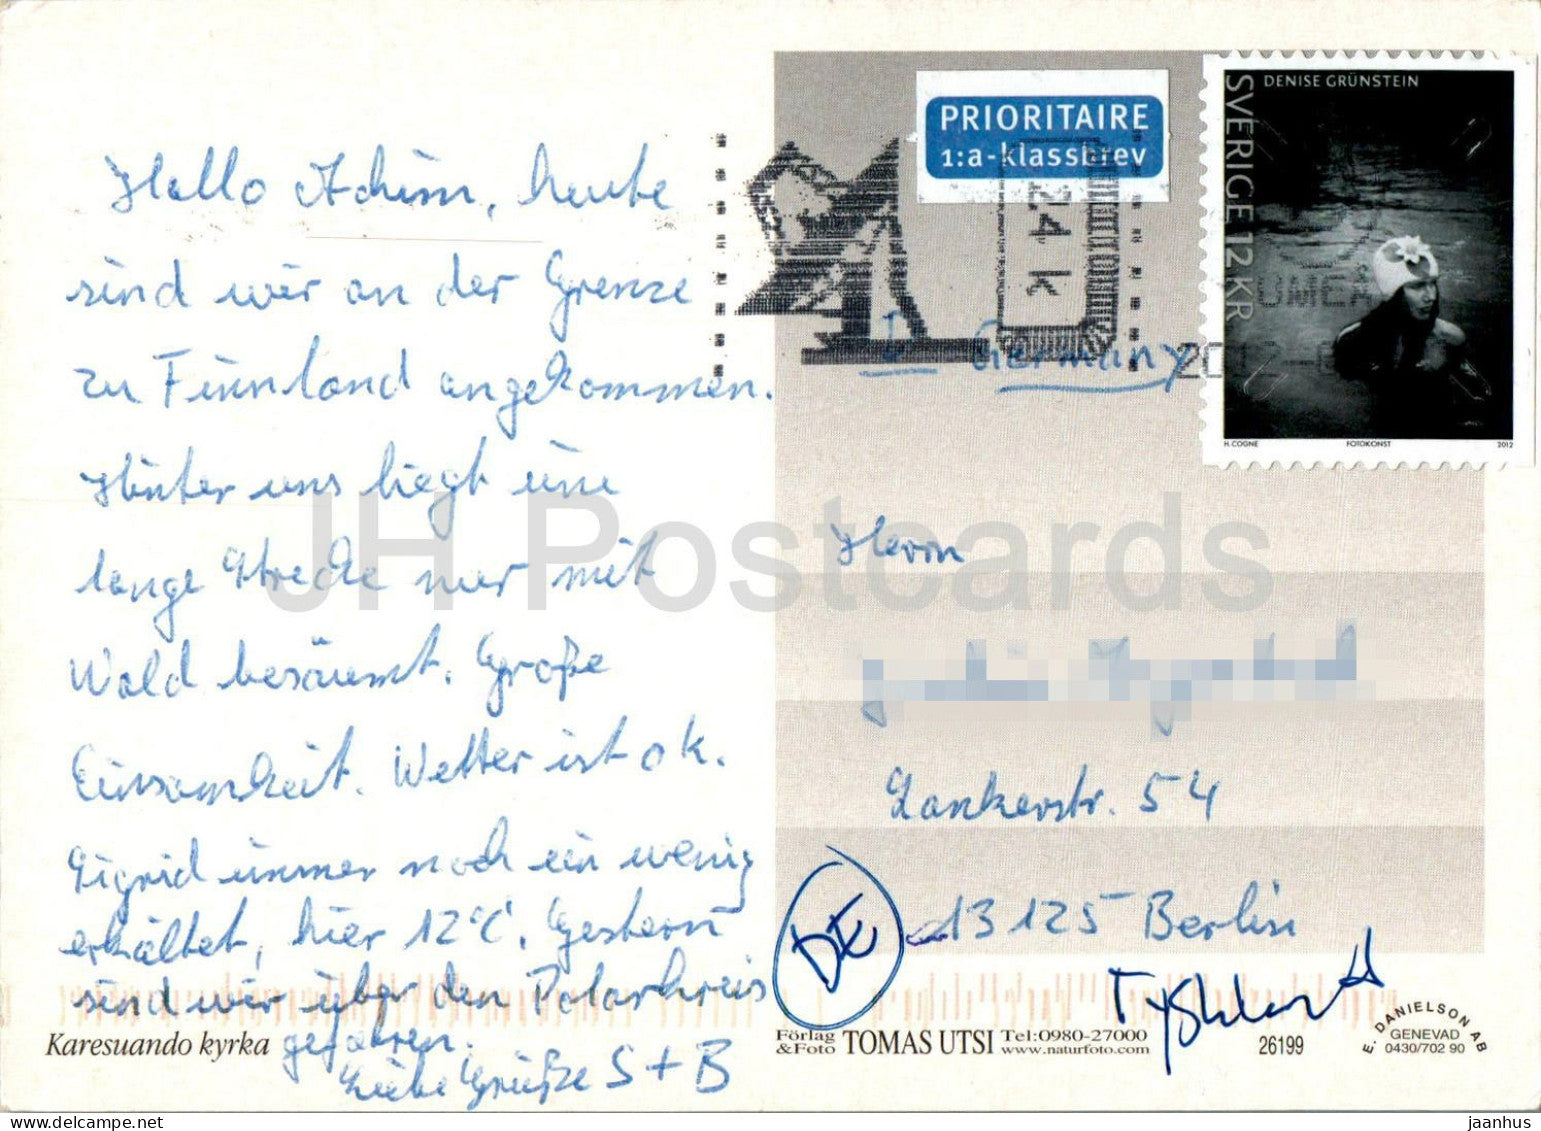 Hallo Achim, heute
sind wir an der Grenze
zu Finnland angekommen.
Hinter uns liegt eine
lange Strecke nur mit
Wald besäumt. Große
Einsamkeit. Wetter ist ok.
Sigrid immer noch ein wenig
erkältet, hier 12°C. Gestern
sind wir über den Polarkreis
gefahren.
Liebe Grüße S + B
Karesuando kyrka
PRIORITAIRE
1:a-klassbrev
24 k
UMEÅ
DENISE GRÜNSTEIN
SVERIGE 12 KR
H. COGNE FOTOKONST 2012
Germany
Herrn
Lankerstr. 54
13125 Berlin
DE
Tyskland
Förlag
&Foto TOMAS UTSI Tel:0980-27000
www.naturfoto.com
26199
E. DANIELSON AB
GENEVAD
0430/702 90
JH Postcards
jaanhus